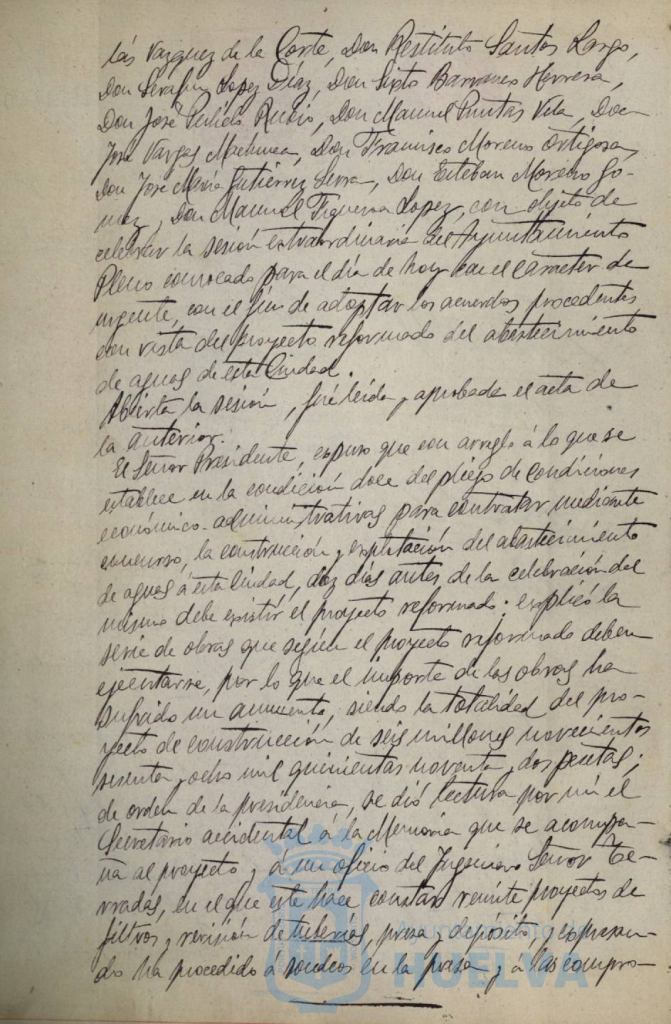 lás Vazquez de la Corte, Don Restituto Santos Largo,
Don Serafin Lopez Díaz, Don Sixto Barranco Herrera,
Don José Pulido Rubio, Don Manuel Puntas Vela, Don
José Vargas Machuca, Don Francisco Moreno Ortigosa,
Don José María Gutiérrez Serra, Don Esteban Moreno Gó-
mez, Don Manuel Figueroa Lopez, con objeto de
celebrar la sesión extraordinaria del Ayuntamiento
Pleno convocada para el día de hoy con el caracter de
urgente, con el fin de adoptar los acuerdos procedentes
con vista del proyecto reformado del abastecimiento
de aguas de esta Ciudad.
Abierta la sesión, fué leida y aprobada el acta de
la anterior.
El Señor Presidente, expuso que con arreglo á lo que se
establece en la condición doce del pliego de condiciones
económico-administrativas para contratar mediante
concurso, la construcción y explotación del abastecimiento
de aguas á esta Ciudad, diez días antes de la celebración del
mismo debe existir el proyecto reformado; explicó la
serie de obras que según el proyecto reformado deben
ejecutarse, por lo que el importe de las obras ha
sufrido un aumento, siendo la totalidad del pro-
yecto de construcción de seis millones novecientos
sesenta y ocho mil quinientas noventa y dos pesetas;
de orden de la presidencia, se dió lectura por mi el
Secretario accidental á la Memoria que se acompa-
ña al proyecto y á un oficio del Ingeniero Señor Te-
rradas, en el que este hace constar remite proyectos de
filtros y revisión de tuberías, presa y depósito, y expresan-
do ha procedido á sondeos en la presa y a las compro-
Ayuntamiento de
HUELVA